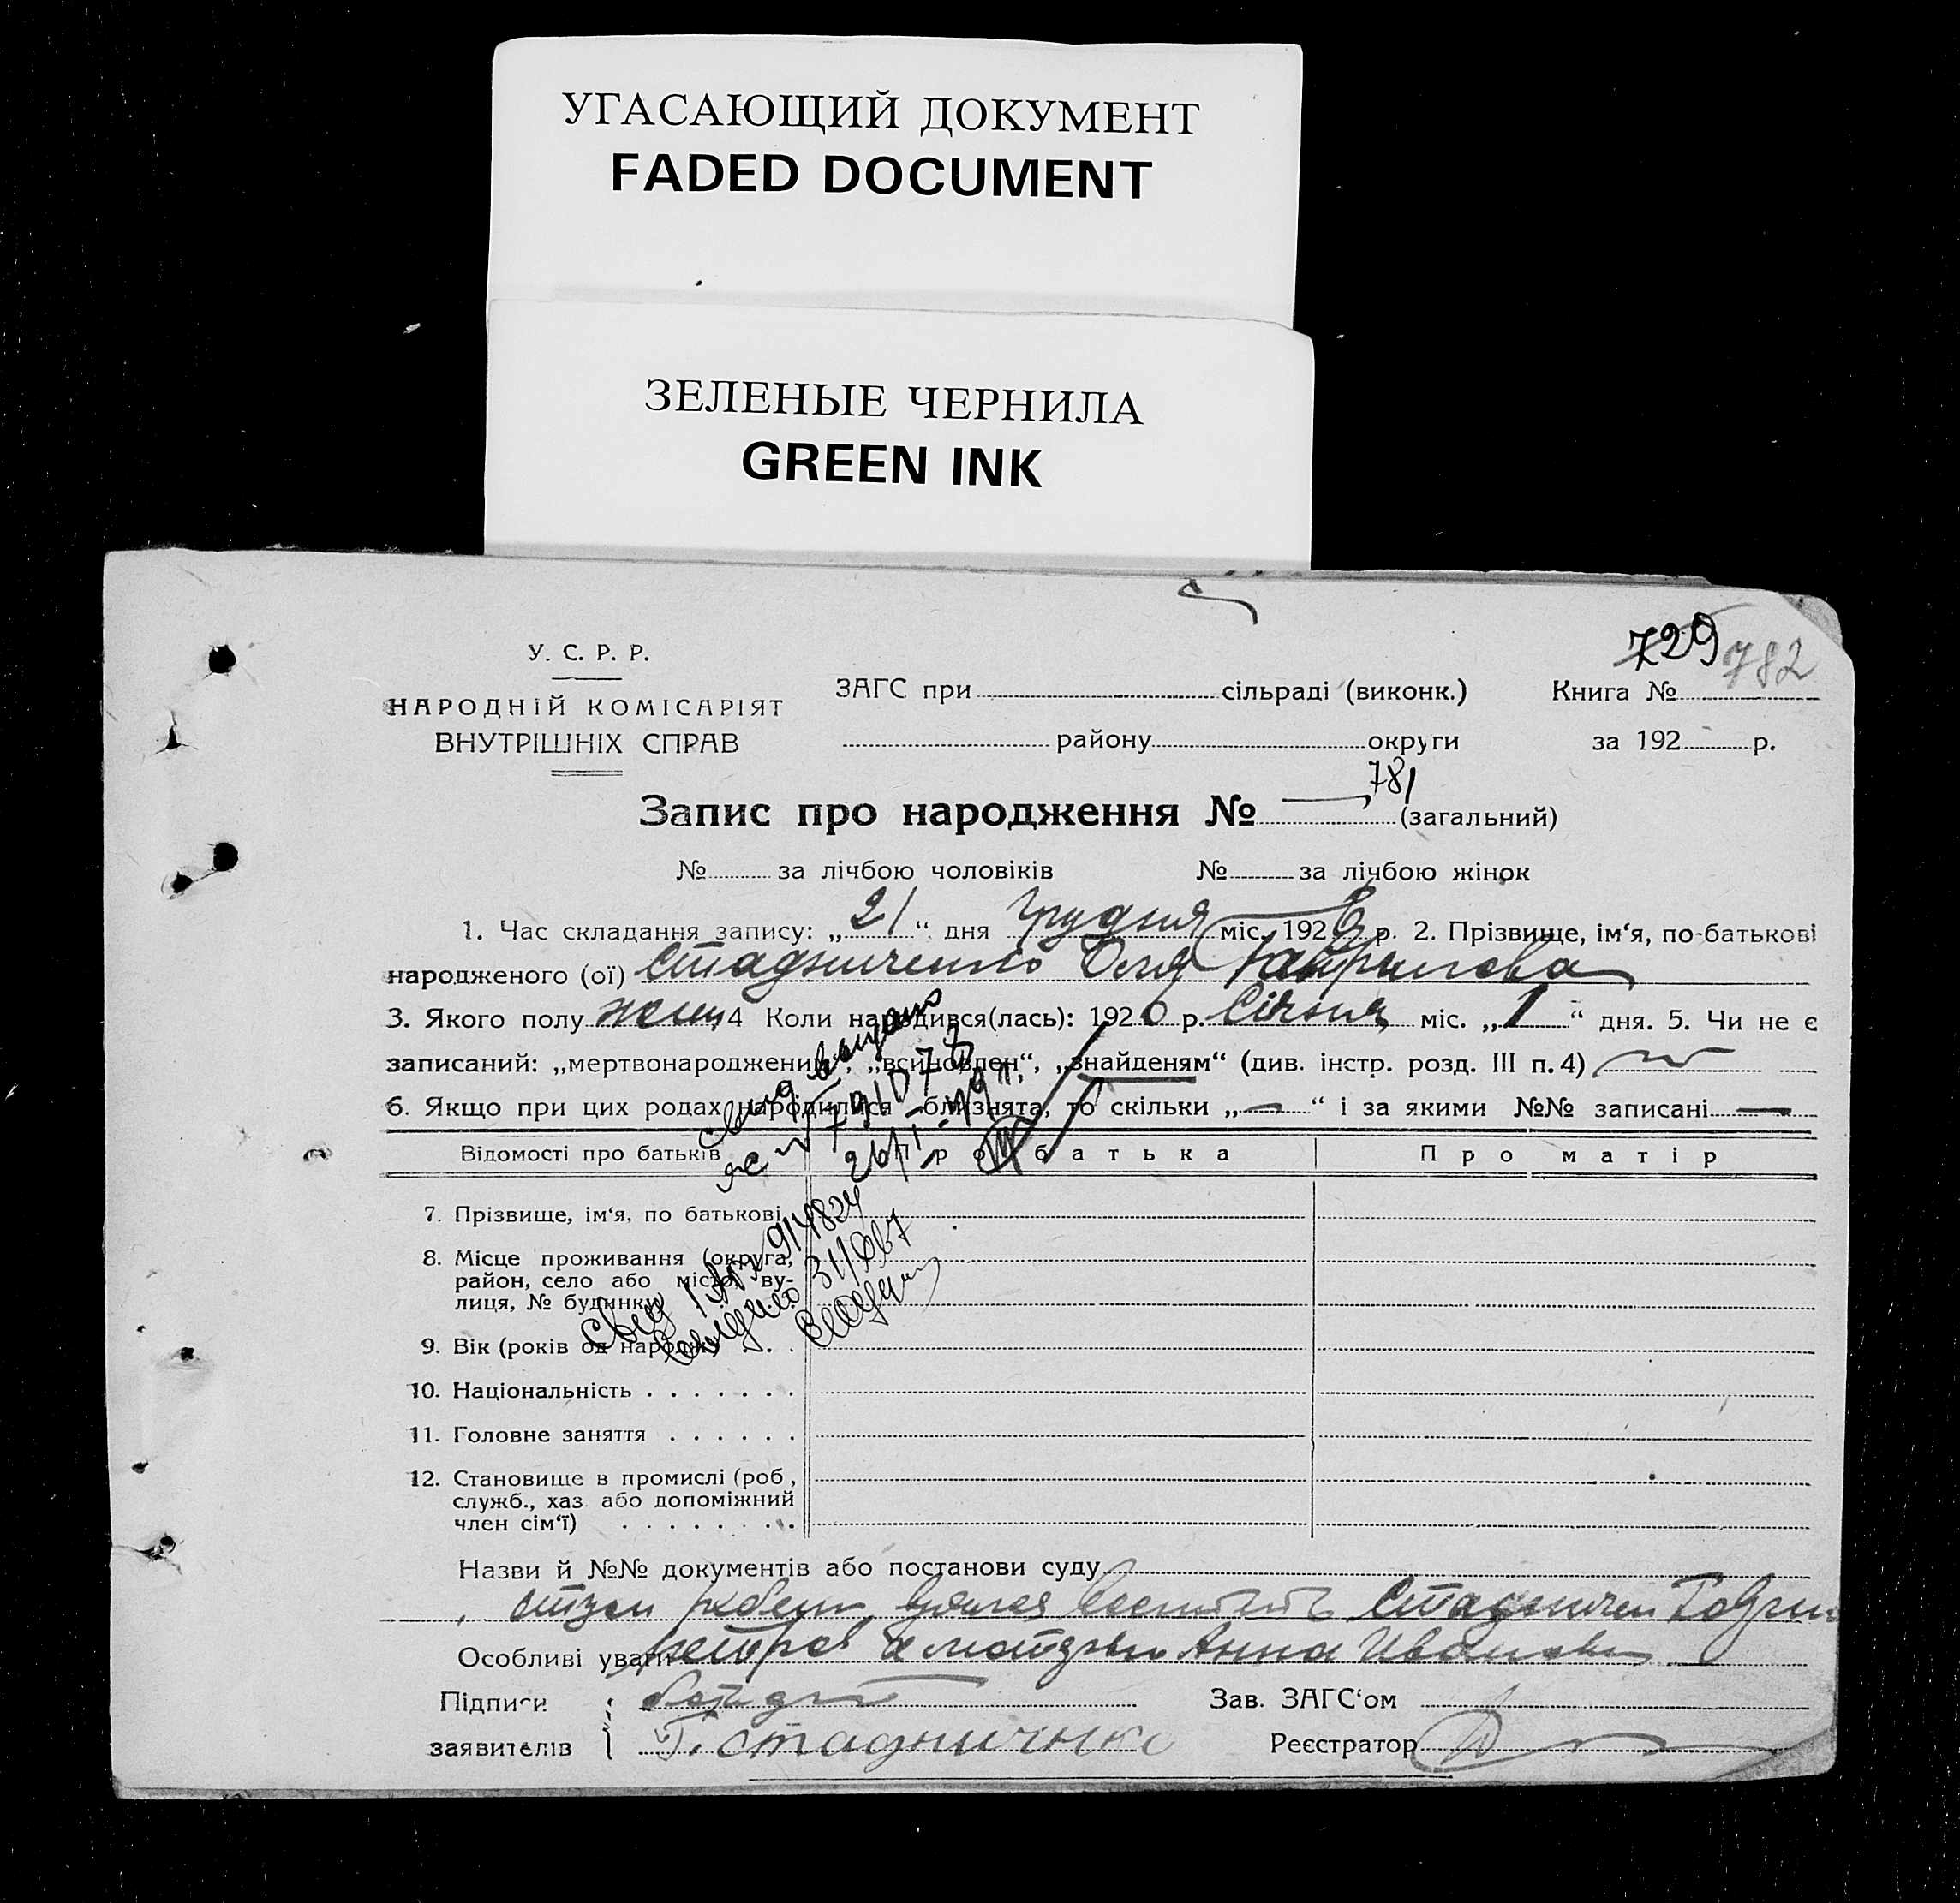 УГАСАЮЩИЙ ДОКУМЕНТ
FADED DOCUMENT
ЗЕЛЕНЫЕ ЧЕРНИЛА
GREEN INK
729 782
У. С. Р. Р.
НАРОДНІЙ КОМІСАРІЯТ
ВНУТРІШНІХ СПРАВ
ЗАГС при сільраді (виконк.) Книга №
району округи за 192 р.
781
Запис про народження № (загальний)
№ за лічбою чоловіків № за лічбою жінок
1. Час складання запису: „21“ дня грудня міс. 1926 р. 2. Прізвище, ім‘я, по-батькові
народженого (ої) Стадниченко Оля Гаврилова
3. Якого полу жен 4 Коли народився(лась): 1920 р. Січня міс. „1“ дня. 5. Чи не є
записаний: „мертвонароджений“, „всиновлен“, „знайденям“ (див. інстр. розд. III п. 4)
6. Якщо при цих родах народилися близнята, то скільки „—“ і за якими №№ записані —
Свид выдано
791078
Відомості про батьків Про батька Про матір
7. Прізвище, ім‘я, по батькові
8. Місце проживання (округа,
район, село або місто, ву-
лиця, № будинку
9. Вік (років од народж.)
10. Національність
11. Головне заняття
12. Становище в промислі (роб,
служб., хаз. або допоміжний
член сім‘ї)
Свид 914824
Назви й №№ документів або постанови суду
Стадничен
Особливі уваги Анна Ивановн
Підписи Зав. ЗАГС‘ом
заявителів Г. Стадниченко Реєстратор